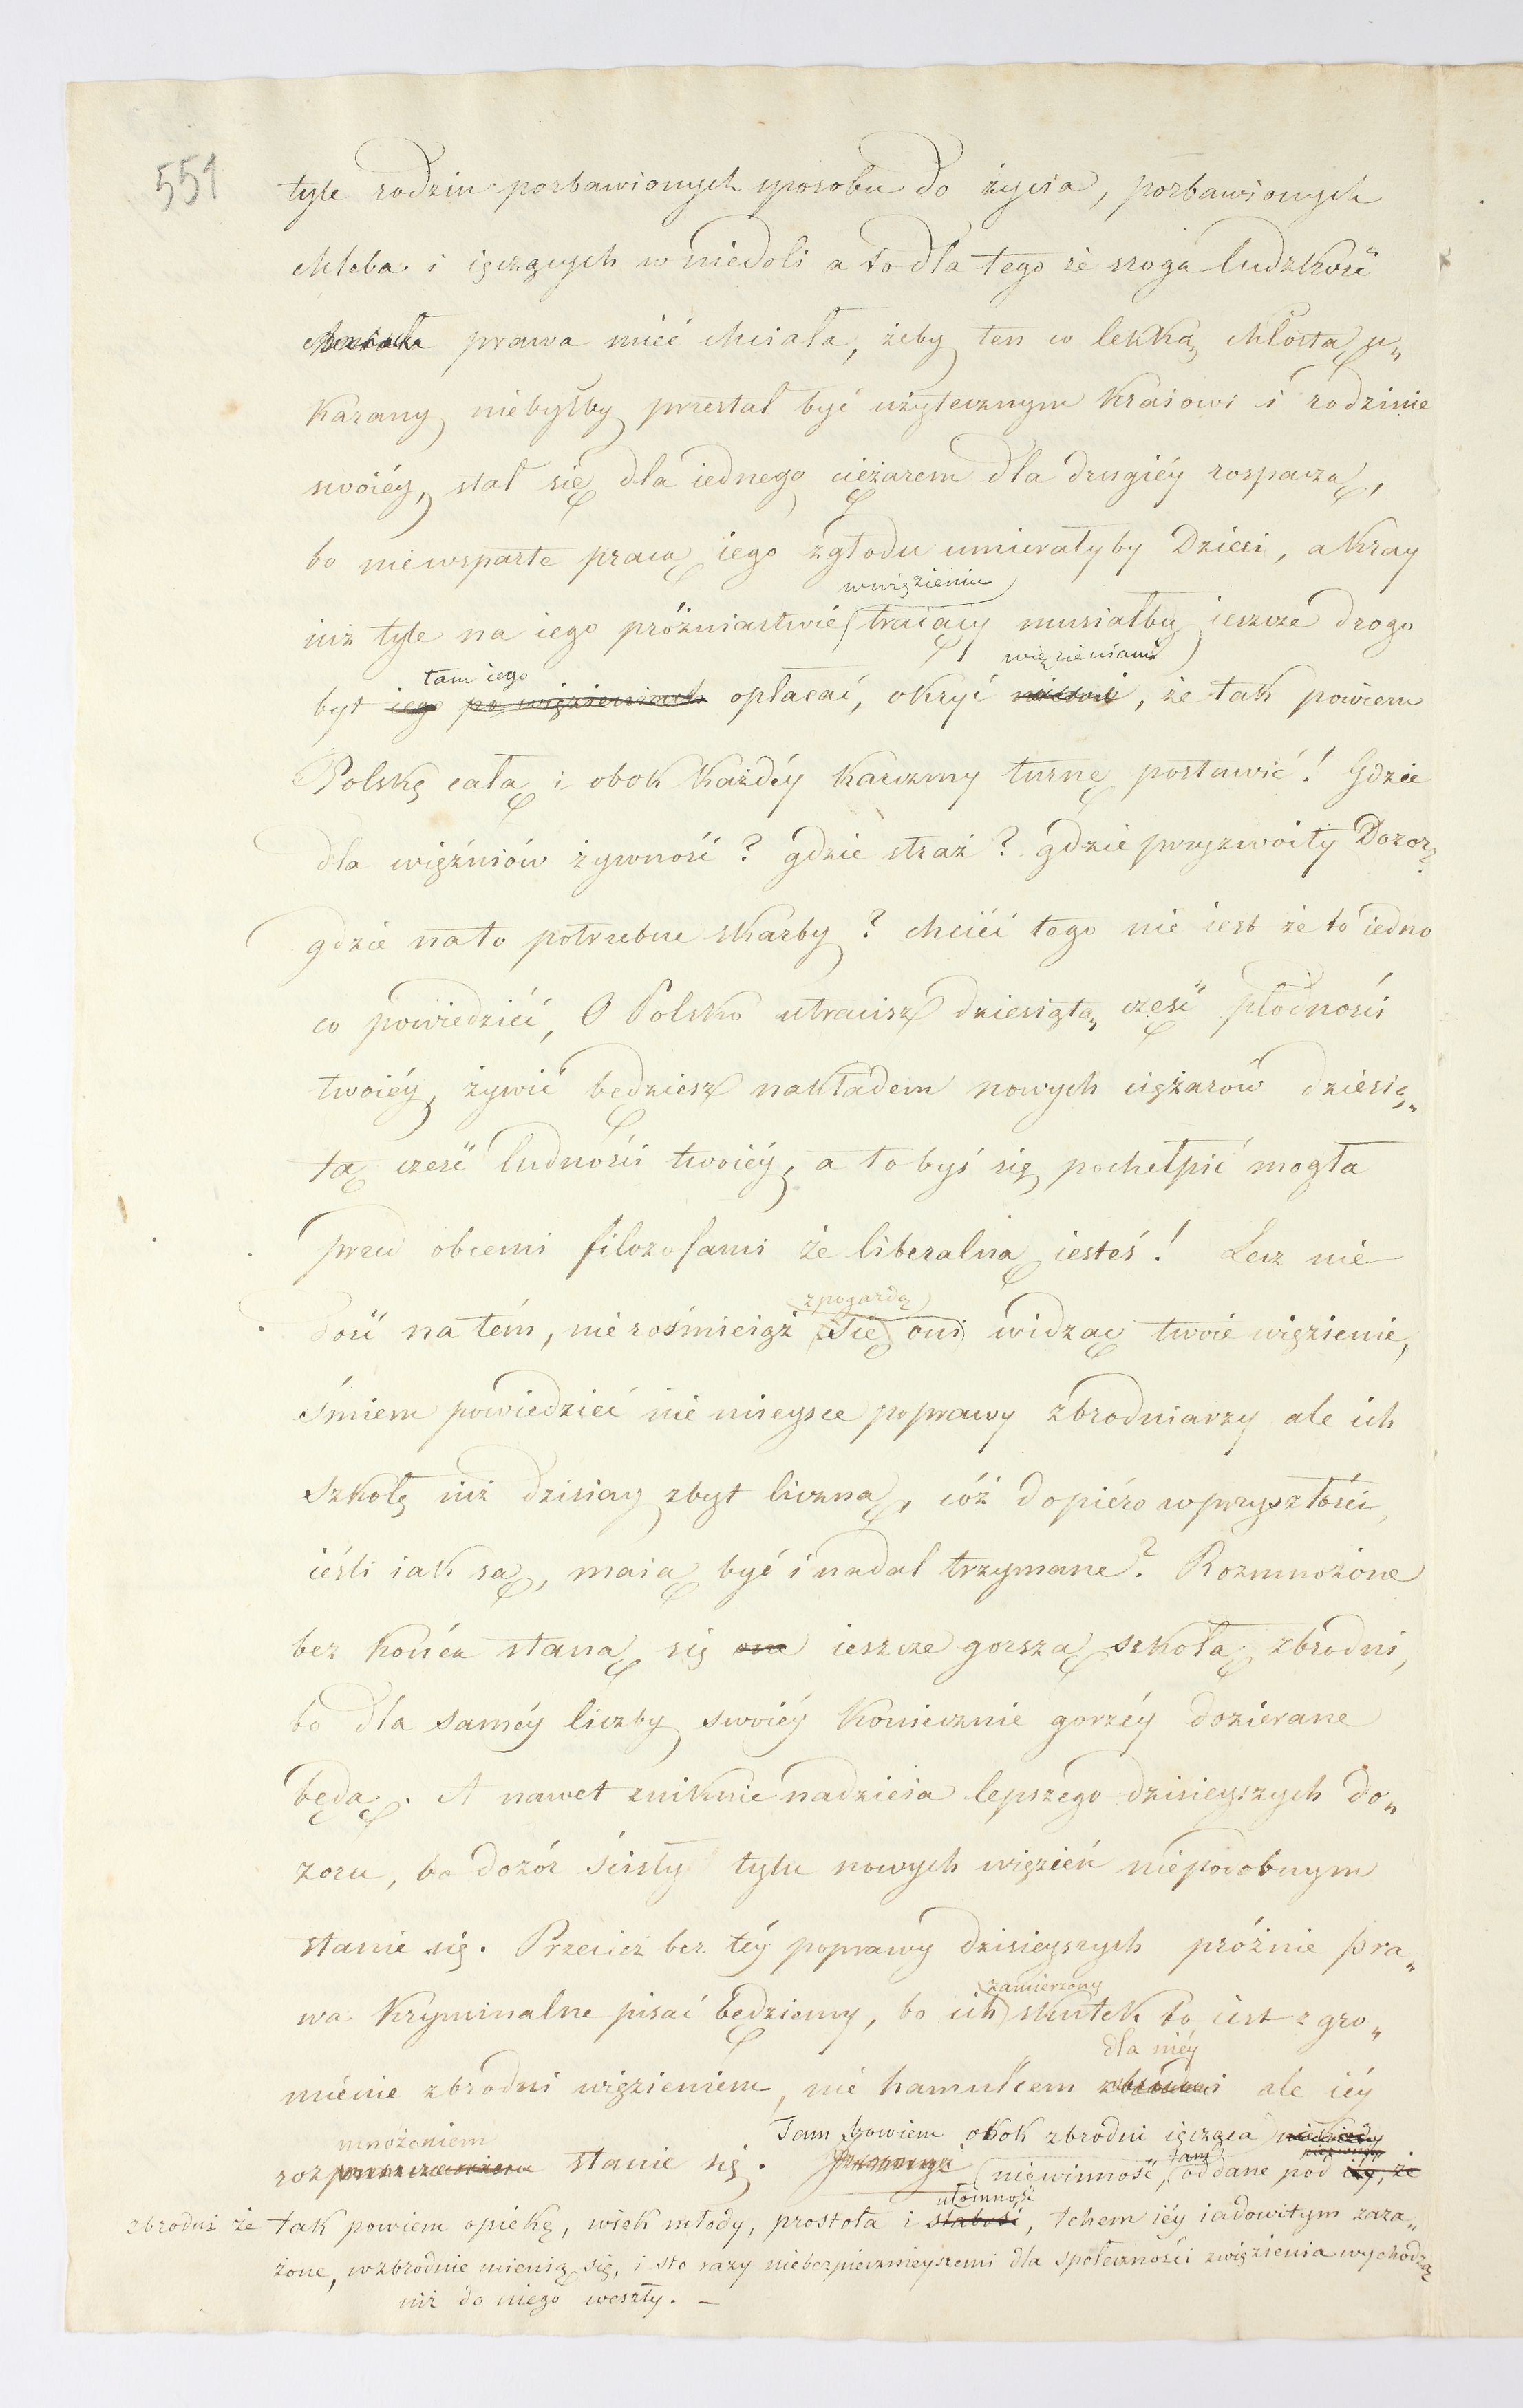 551
tyle rodzin pozbawionych sposobu do życia, pozbawionych
chleba i ięczących w niedoli a to dla tego że sroga ludzkość
prawa mieć chciała, żeby ten co lekką chłostą u„
karany niebyłby przestał być użytecznym kraiowi i rodzinie
swoiéy, stał się dla iednego ciężarem dla drugiéy rospaczą,
bo niewsparte pracą iego zgłodu umierałyby Dzieci, a kray
wwięzieniu
iuż tyle na iego próżniactwie tracący musiałby ieszcze drogo
tam iego więzieniami
byt iego po więzieniach opłacać, okryć niemi, że tak powiem
Polskę całą i obok każdéy karczmy turnę postawić! Gdzie
dla więźniów żywność? gdzie straż? gdzie przyzwoity Dozor?
gdzie nato potrzebne skarby? chcieć tego nie iest że to iedno
co powiedzieć, O Polsko utracisz dziesiątą część płodności
twoiéy, żywić będziesz nakładem nowych ciężarów dziesią„
tą cześć ludności twoiéy, a to byś się pochełpić mogła
przed obcemi filozofami że liberalną iesteś! Lecz nie
zpogardą
dość na tém, nie rośmieiąż się oni widząc twoie więzienie,
śmiem powiedzieć nie mieysce poprawy zbrodniarzy ale ich
szkołę iuż dzisiay zbyt liczną, cóż dopiéro wprzyszłości,
ieśli iak są, maią być i nadal trzymane? Rozmnożone
bez końca staną się one ieszcze gorszą szkołą zbrodni,
bo dla saméy liczby swoiéy koniecznie gorzéy dozierane
będą. A nawet zniknie nadzieia lepszego dzisieyszych do„
zoru, bo dozór ścisły tylu nowych więzień niepodobnym
stanie się. Przecież bez téy poprawy dzisieyszych próżnie pra„
zamierzony
wa kryminalne pisać będziemy, bo ich skutek to iest zgro„
dla niéy
mienie zbrodni więzieniem, nie hamulcem zbrodni ale iéy
mnożeniem Tam bowiem obok zbrodni ięcząca niekiedy
roz stanie się. niewinność, tam oddane pod iéy, że
ułomność
zbrodni że tak powiem opiekę, wiek młody, prostota i słabość, tchem iéy iadowitym zara„
żone, wzbrodnie mienią się, i sto razy niebezpiecznieyszemi dla społeczności zwięzienia wychodzą
niż do niego weszły. –